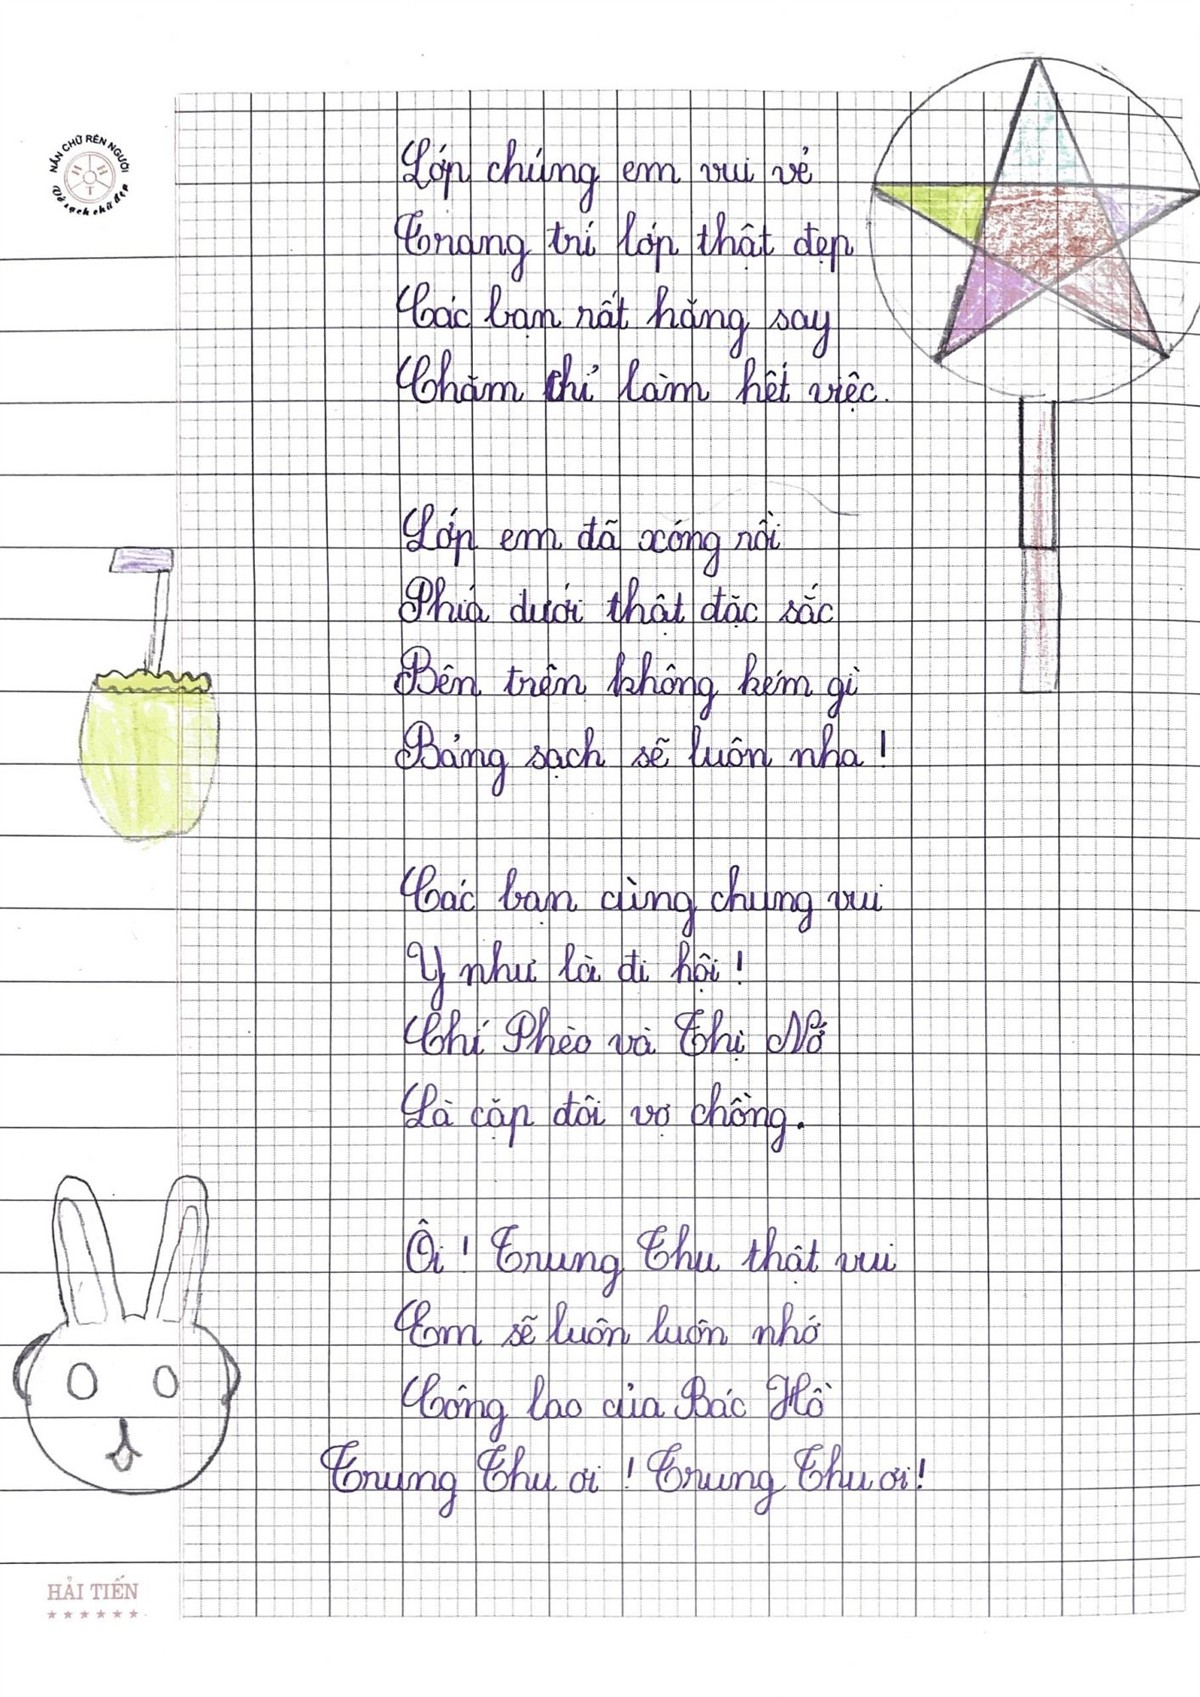 NẮN CHỮ RÈN NGƯỜI
Vở sạch chữ đẹp
Lớp chúng em vui vẻ
Trang trí lớp thật đẹp
Các bạn rất hăng say
Chăm chỉ làm hết việc.
Lớp em đã xóng rồi
Phiá dưới thật đặc sắc
Bên trên không kém gì
Bảng sạch sẽ luôn nha !
Các bạn cùng chung vui
Y như là đi hội !
Chí Phèo và Thị Nở
Là cặp đôi vợ chồng.
Ôi ! Trung Thu thật vui
Em sẽ luôn luôn nhớ
Công lao của Bác Hồ
Trung Thu ơi ! Trung Thu ơi !
HẢI TIẾN